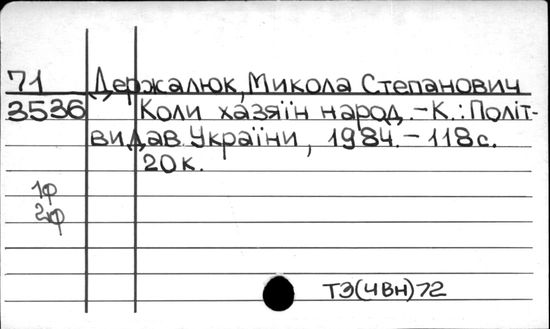 71 Держалюк, Микола Степанович
3536 Коли хазяїн народ. – К.: Політ-
видав. України, 1984. – 118 с.
20 к.
1ф
2ф
ТЭ(4Вн)72